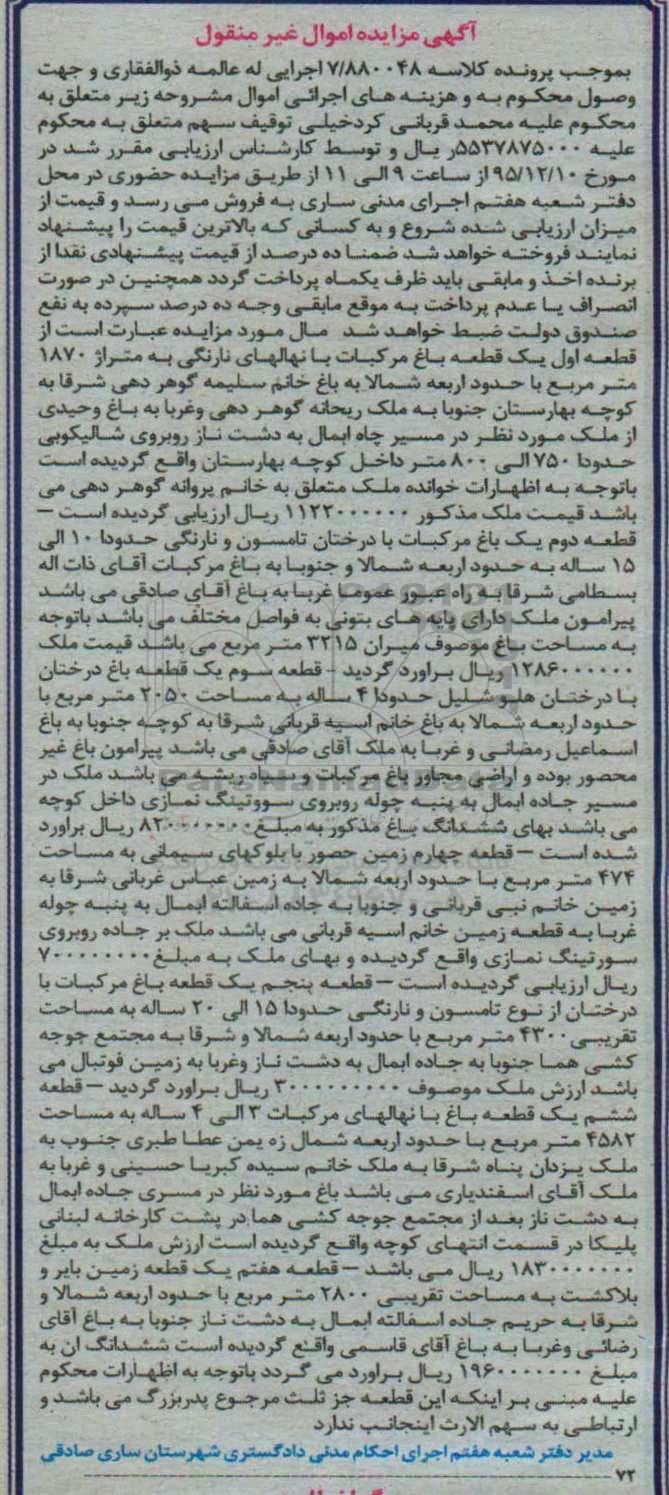 آگهی مزایده اموال غیر منقول
بموجب پرونده کلاسه ۷/۸۸۰۰۴۸ اجرایی له عالمه ذوالفقاری و جهت
وصول محکوم به و هزینه های اجرائی اموال مشروحه زیر متعلق به
محکوم علیه محمد قربانی کردخیلی توقیف سهم متعلق به محکوم
علیه ۵۵۳۷۸۷۵۰۰۰ر یال و توسط کارشناس ارزیابی مقرر شد در
مورخ ۹۵/۱۲/۱۰ از ساعت ۹ الی ۱۱ از طریق مزایده حضوری در محل
دفتر شعبه هفتم اجرای مدنی ساری به فروش می رسد و قیمت از
میزان ارزیابی شده شروع و به کسانی که بالاترین قیمت را پیشنهاد
نمایند فروخته خواهد شد ضمنا ده درصد از قیمت پیشنهادی نقدا از
برنده اخذ و مابقی باید ظرف یکماه پرداخت گردد همچنین در صورت
انصراف یا عدم پرداخت به موقع مابقی وجه ده درصد سپرده به نفع
صندوق دولت ضبط خواهد شد مال مورد مزایده عبارت است از
قطعه اول یک قطعه باغ مرکبات با نهالهای نارنگی به متراژ ۱۸۷۰
متر مربع با حدود اربعه شمالا به باغ خانم سلیمه گوهر دهی شرقا به
کوچه بهارستان جنوبا به ملک ریحانه گوهر دهی وغربا به باغ وحیدی
از ملک مورد نظر در مسیر چاه ابمال به دشت ناز روبروی شالیکوبی
حدودا ۷۵۰ الی ۸۰۰ متر داخل کوچه بهارستان واقع گردیده است
باتوجه به اظهارات خوانده ملک متعلق به خانم پروانه گوهر دهی می
باشد قیمت ملک مذکور ۱۱۲۲۰۰۰۰۰۰ ریال ارزیابی گردیده است –
قطعه دوم یک باغ مرکبات با درختان تامسون و نارنگی حدودا ۱۰ الی
۱۵ ساله به حدود اربعه شمالا و جنوبا به باغ مرکبات آقای ذات اله
بسطامی شرقا به راه عبور عموما غربا به باغ آقای صادقی می باشد
پیرامون ملک دارای پایه های بتونی به فواصل مختلف می باشد باتوجه
به مساحت باغ موصوف میران ۳۲۱۵ متر مربع می باشد قیمت ملک
۱۲۸۶۰۰۰۰۰۰ ریال براورد گردید - قطعه سوم یک قطعه باغ درختان
با درختان هلو شلیل حدودا ۴ ساله به مساحت ۲۰۵۰ متر مربع با
حدود اربعه شمالا به باغ خانم اسیه قربانی شرقا به کوچه جنوبا به باغ
اسماعیل رمضانی و غربا به ملک آقای صادقی می باشد پیرامون باغ غیر
محصور بوده و اراضی مجاور باغ مرکبات و سیاه ریشه می باشد ملک در
مسیر جاده ابمال به پنبه چوله روبروی سووتینگ نمازی داخل کوچه
می باشد بهای ششدانگ باغ مذکور به مبلغ ۸۲۰۰۰۰۰۰۰ ریال براورد
شده است – قطعه چهارم زمین حصور با بلوکهای سیمانی به مساحت
۴۷۴ متر مربع با حدود اربعه شمالا به زمین عباس غربانی شرقا به
زمین خانم نبی قربانی و جنوبا به جاده اسفالته ابمال به پنبه چوله
غربا به قطعه زمین خانم اسیه قربانی می باشد ملک بر جاده روبروی
سورتینگ نمازی واقع گردیده و بهای ملک به مبلغ ۷۰۰۰۰۰۰۰۰
ریال ارزیابی گردیده است – قطعه پنجم یک قطعه باغ مرکبات با
درختان از نوع تامسون و نارنگی حدودا ۱۵ الی ۲۰ ساله به مساحت
تقریبی ۴۳۰۰ متر مربع با حدود اربعه شمالا و شرقا به مجتمع جوجه
کشی هما جنوبا به جاده ابمال به دشت ناز وغربا به زمین فوتبال می
باشد ارزش ملک موصوف ۳۰۰۰۰۰۰۰۰۰ ریال براورد گردید – قطعه
ششم یک قطعه باغ با نهالهای مرکبات ۳ الی ۴ ساله به مساحت
۴۵۸۲ متر مربع با حدود اربعه شمال زه یمن عطا طبری جنوب به
ملک یزدان پناه شرقا به ملک خانم سیده کبریا حسینی و غربا به
ملک آقای اسفندیاری می باشد باغ مورد نظر در مسری جاده ابمال
به دشت ناز بعد از مجتمع جوجه کشی هما در پشت کارخانه لبنانی
پلیکا در قسمت انتهای کوچه واقع گردیده است ارزش ملک به مبلغ
۱۸۳۰۰۰۰۰۰۰ ریال می باشد – قطعه هفتم یک قطعه زمین بایر و
بلاکشت به مساحت تقریبی ۲۸۰۰ متر مربع با حدود اربعه شمالا و
شرقا به حریم جاده اسفالته ابمال به دشت ناز جنوبا به باغ آقای
رضائی وغربا به باغ آقای قاسمی واقع گردیده است ششدانگ ان به
مبلغ ۱۹۶۰۰۰۰۰۰۰ ریال براورد می گردد باتوجه به اظهارات محکوم
علیه مبنی بر اینکه این قطعه جز ثلث مرجوع پدربزرگ می باشد و
ارتباطی به سهم الارث اینجانب ندارد
مدیر دفتر شعبه هفتم اجرای احکام مدنی دادگستری شهرستان ساری صادقی
۷۲